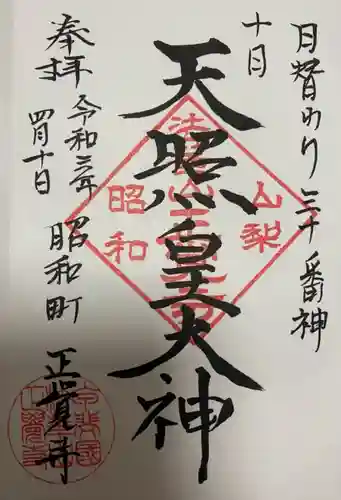 日替わり三十番神
十日
天照皇大神
山梨
昭和
奉拝
令和三年
四月十日
昭和町
正覚寺